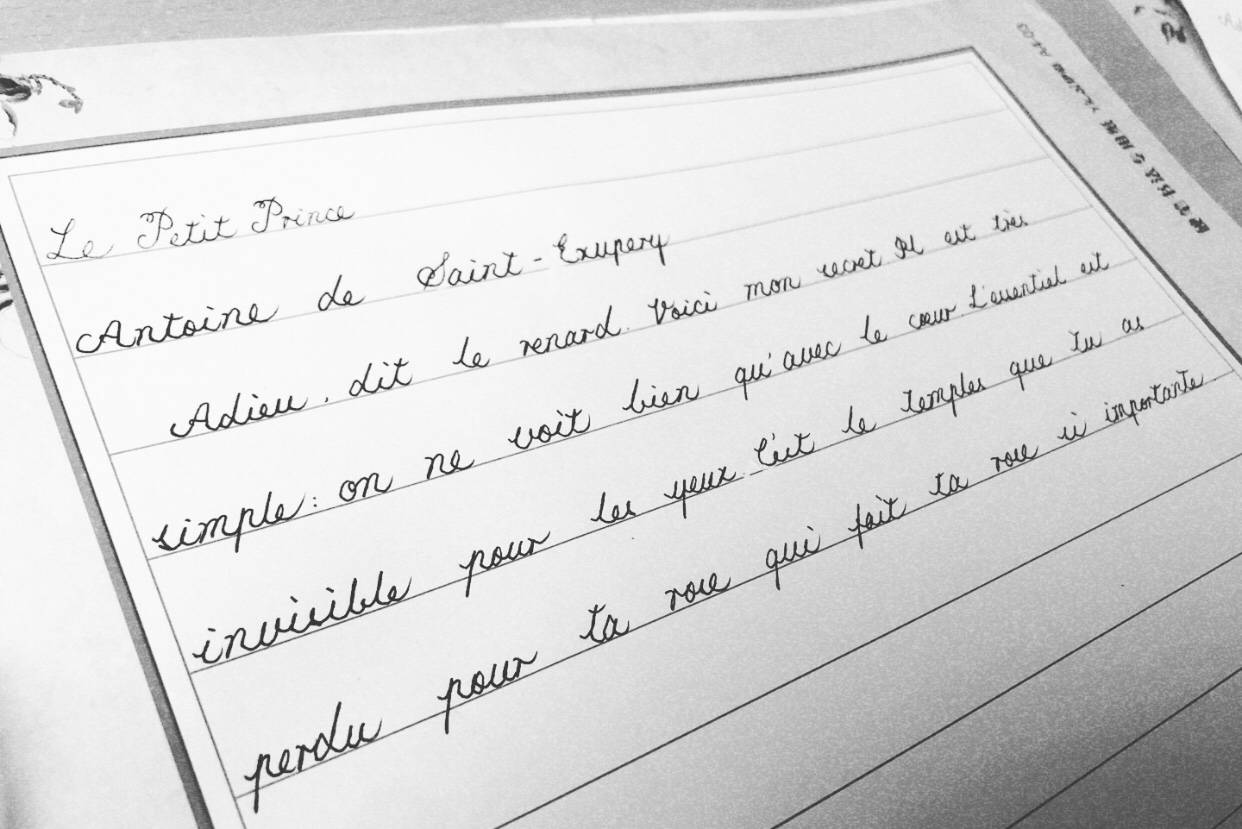 Le Petit Prince
Antoine de Saint-Exupery
Adieu, dit le renard. Voici mon secret Il est très
simple: on ne voit bien qu'avec le cœur L'essentiel est
invisible pour les yeux. C'est le temples que tu as
perdu pour ta rose qui fait ta rose si importante.
硬笔书法专用纸